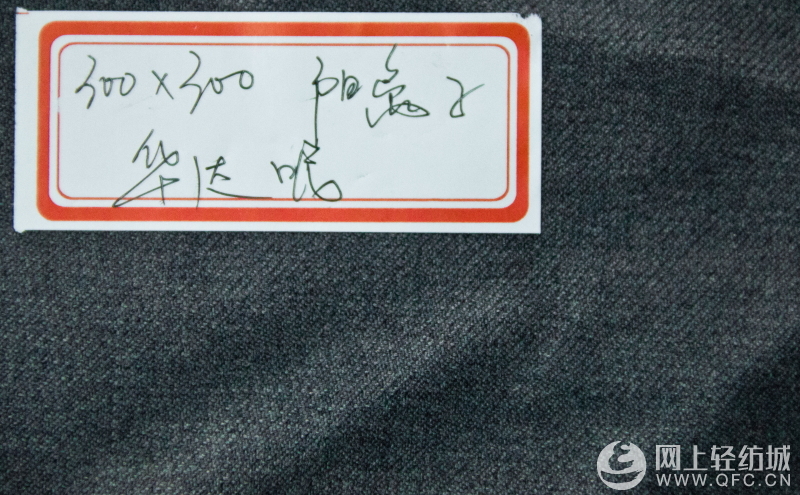 300×300 阳离子
华达呢
网上轻纺城
WWW.QFC.CN